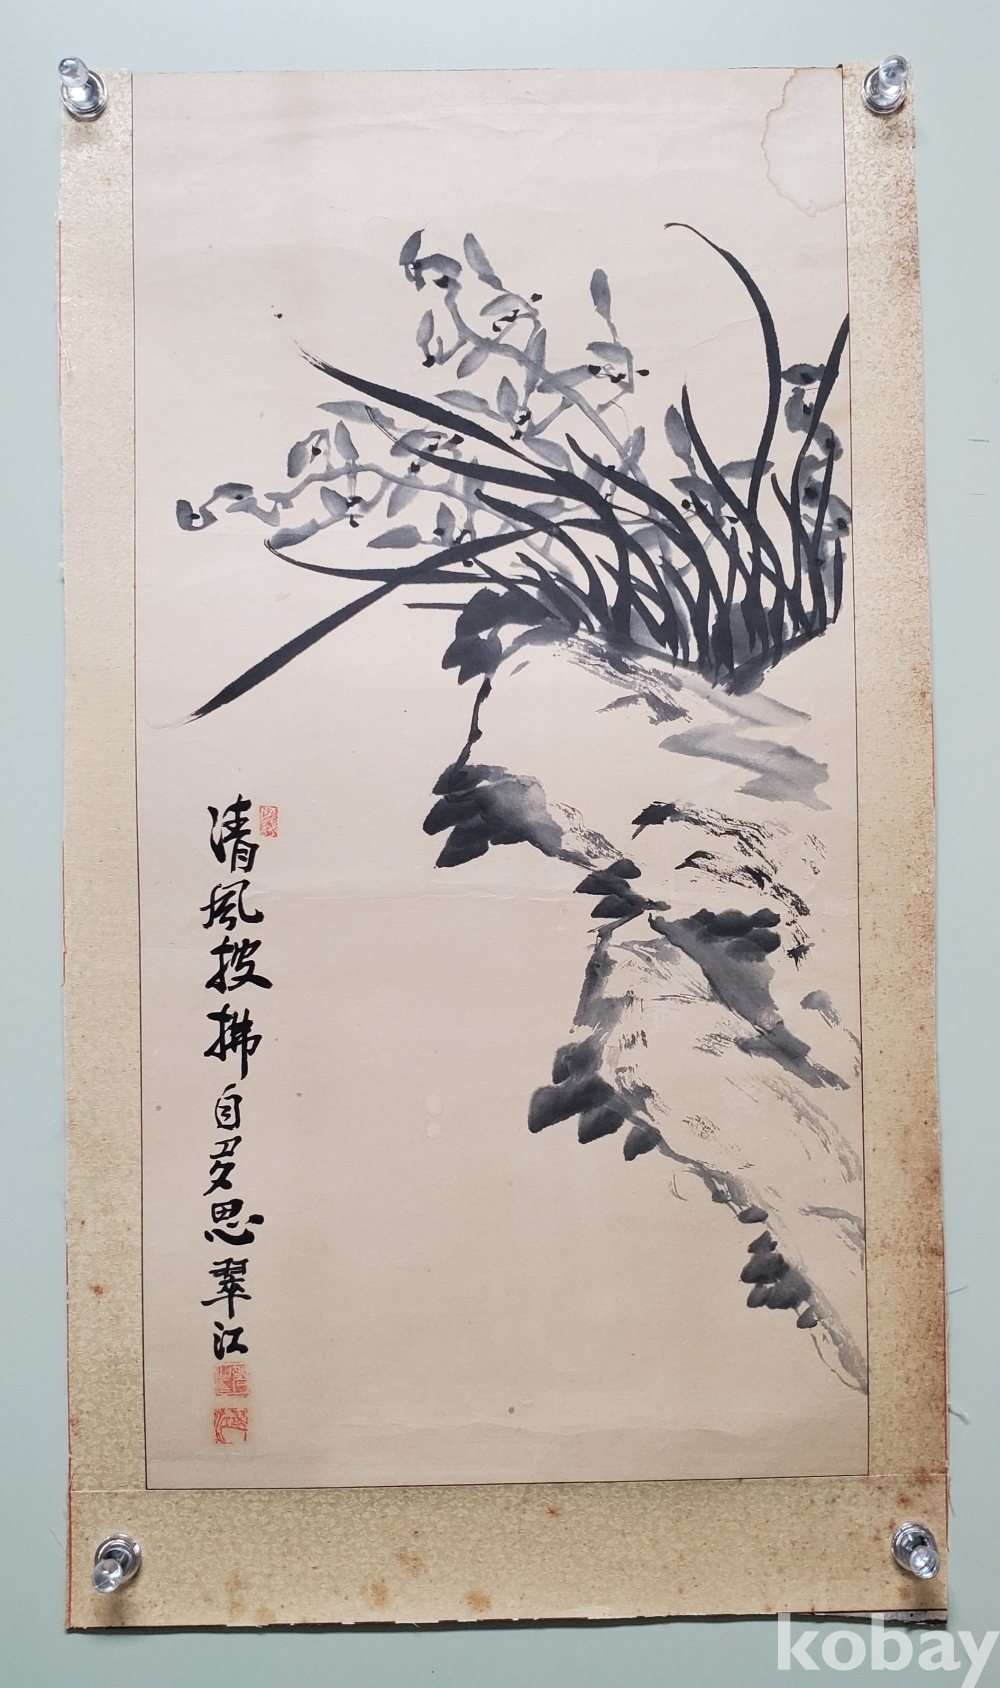 清風披拂自多思 翠江
kobay